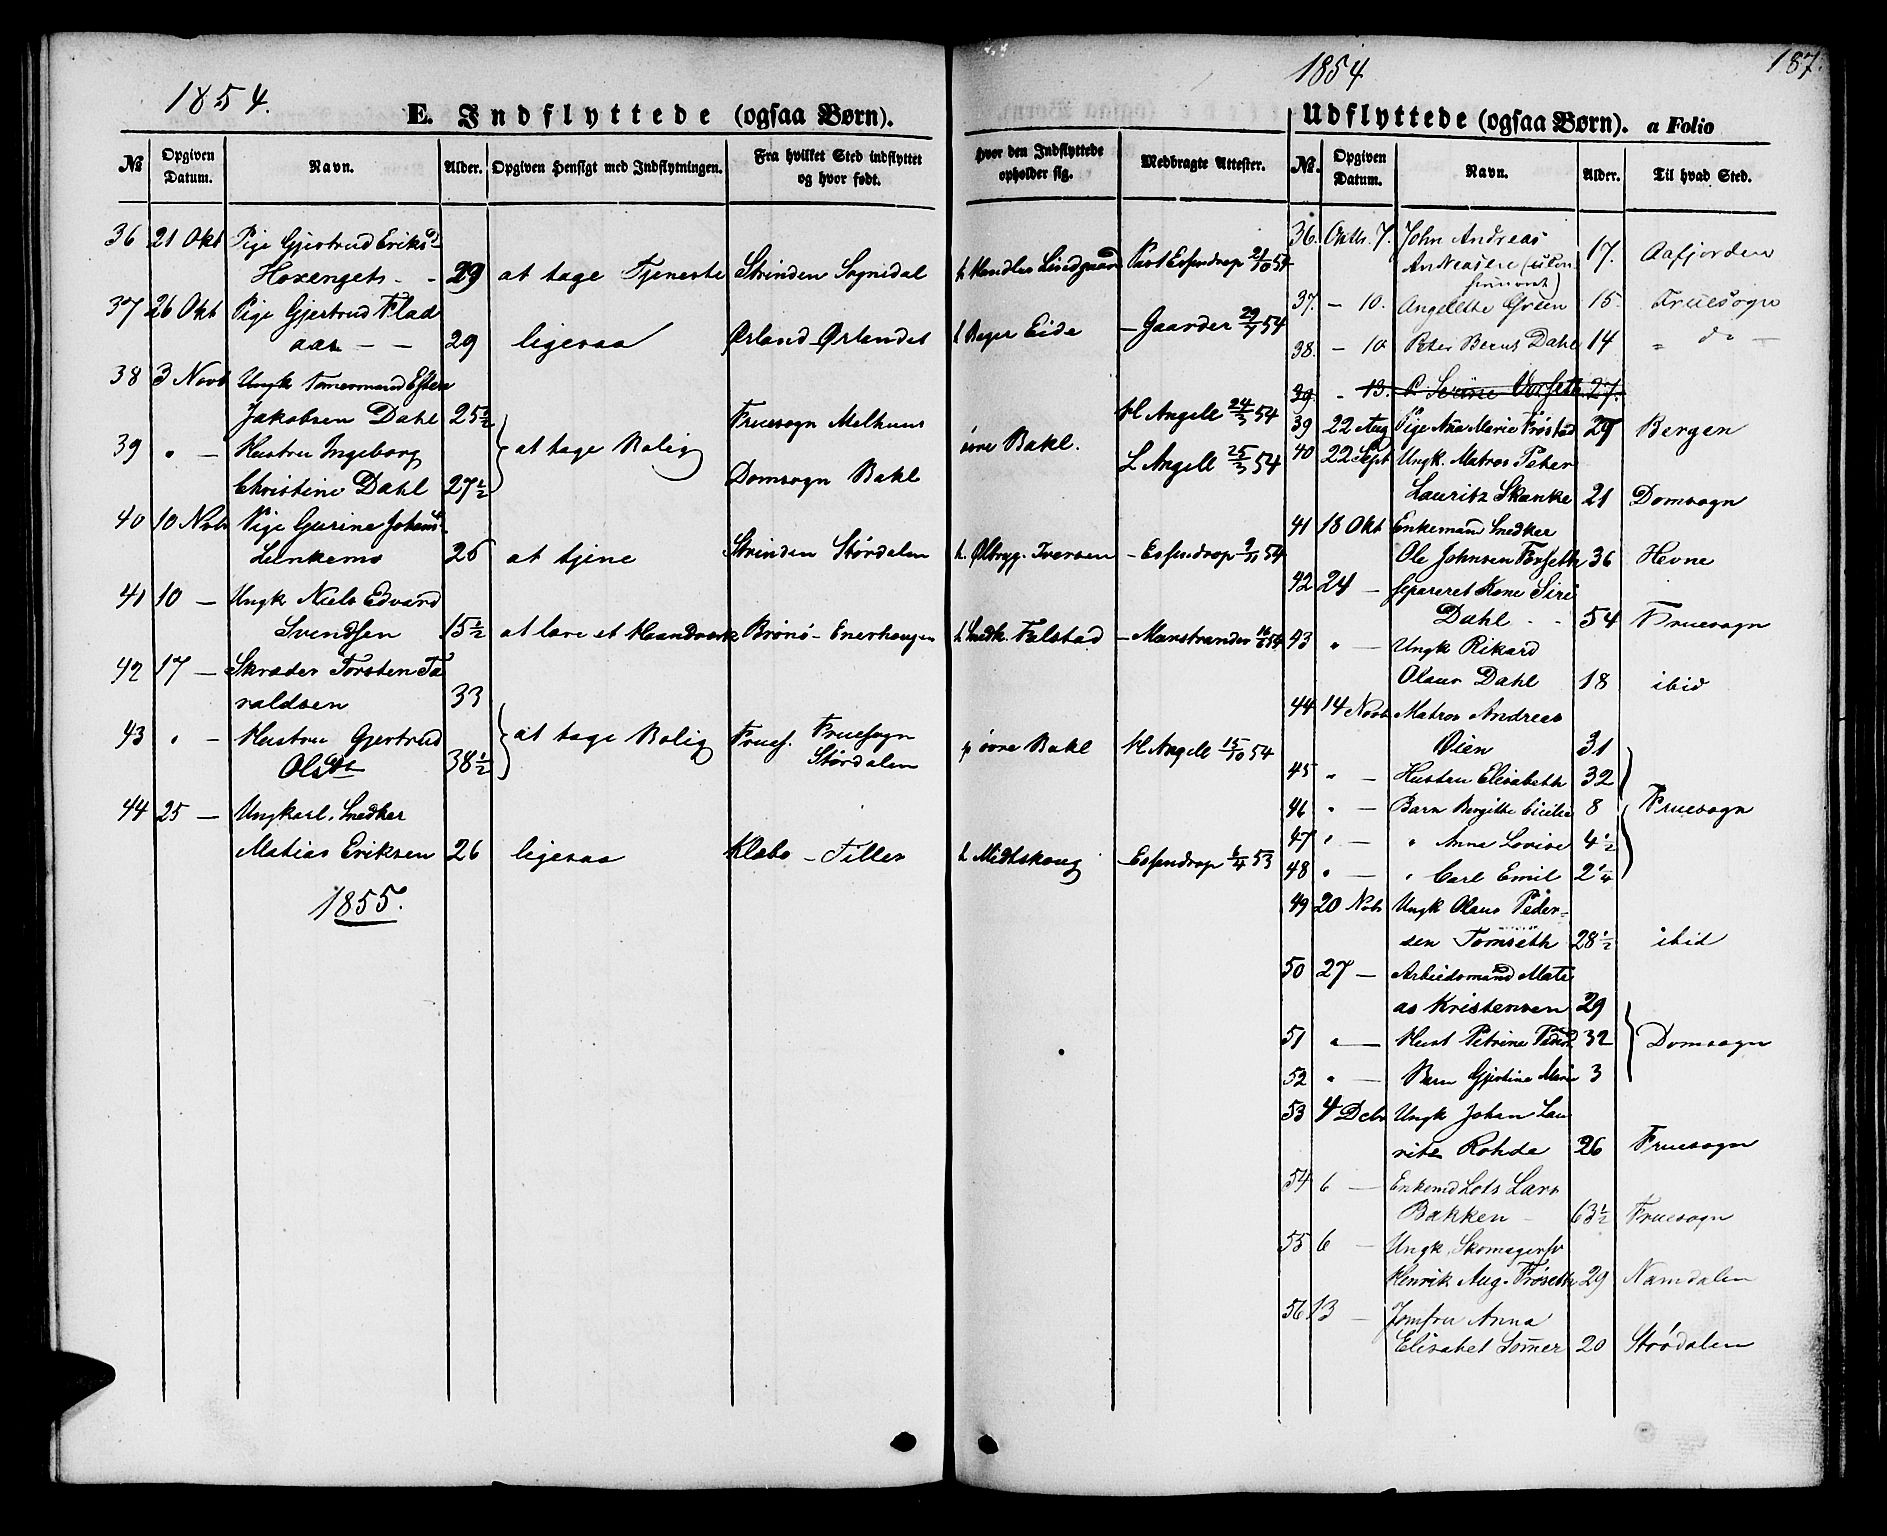 1854.
E. Indflyttede (ogsaa Børn).
№ Opgiven Datum. Navn. Alder. Opgiven Hensigt med Indflytningen. Fra hvilket Sted indflyttet og hvor født. Hvor den Indflyttede opholder sig. Medbragte Attester.
36 21 Okt Pige Gjertrud Eriksd
Hoxengets - - 29 at tage Tjeneste Strinden Sognidal h Handler Lindgaard Past Essendrop 21/10 54
37 26 Okt Pige Gjertrud Flad
aas - - 29 ligesaa Ørland - Ørlandet h Bager Eide - Gaarder 29/9 54
38 3 Novb Ungk Tømermand Esten
Jakobsen Dahl 25½ Fruesogn Melhuus Kl Angell 24/3 54
39 " - Hustru Ingeborg at tage Bolig øvre Bakl.
Christine Dahl 27½ Domsogn Bakl Kl Angell 25/3 54
40 10 Nvbr Pige Gurine Johans
Lenkems 26 at tjene Strinden Størdalen h. Ølbryg. Iversen - Essendrop 9/11 54
41 10 - Ungk Niels Edvard
Svendsen 15½ at lære et Haandværk Brønø - Enerhaugen h. Snedk. Falstad - Marstrander 54
42 17 - Skræder Torsten Ta
raldsen 33
43 " - Hustru Gjertrud at tage Bolig Frues. Fruesogn p øvre Bakl Kl Angell 15/10 54
Olsdtr 38½ Størdalen
44 25 - Ungkarl. Snedker
Matias Eriksen 26 ligesaa Klæbo - Tiller h Midtskoug - Essendrop 6/4 53
1855.
1854
187.
Udflyttede (ogsaa Børn). a Folio
№. Opgiven Datum. Navn. Alder. Til hvad Sted.
36. Octbr. 7. John Andreas
Andreasen 17. Aafjorden
37. - 10. Angelette Green 15. Fruesogn
38. - 10 Peter Beeus Dahl 14 " do -
39. " 13. P. 27.
39 22 Aug Pige Ana Marie Frøstad 29 Bergen
40 22 Sept Ungk. Matros Peter
Lauritz Skanke 21 Domsogn
41 18 Okt Enkemand Snedker
Ole Johnsen Forseth 36 Hevne
42 24 - Separeret Kone Siri
Dahl - - 54 Fruesogn
43 " - Ungk Rikard
Olaus Dahl 18 ibid
44 14 Novb Matros Andreas
Øien 31
45 " - Hustru Elisabeth 32
46 " - Barn Bergitte Cicilie 8 Fruesogn
47 " - " Anna Lovise 4½
48 " - " Carl Emil 2¼
49 20 Nvbr Ungk Olaus Peder-
sen Tomseth 28½ ibid
50 27 - Arbiedsmand Mati
as Kristensen 29
51 " - Hust Petrine Pedsd 32 Domsogn
52 " - Barn Gjertine Mari 3
53 4 Dcbr Ungk Johan Lau
ritz Rohde 26 Fruesogn
54 6 - Enkemd Lots Lars
Bakken - 63½ Fruesogn
55 6 - Ungk. Skomagersv
Henrik Aug. Frøseth 29 Namdalen
56 13 - Jomfru Anna
Elisabet Somer 20 Størdalen